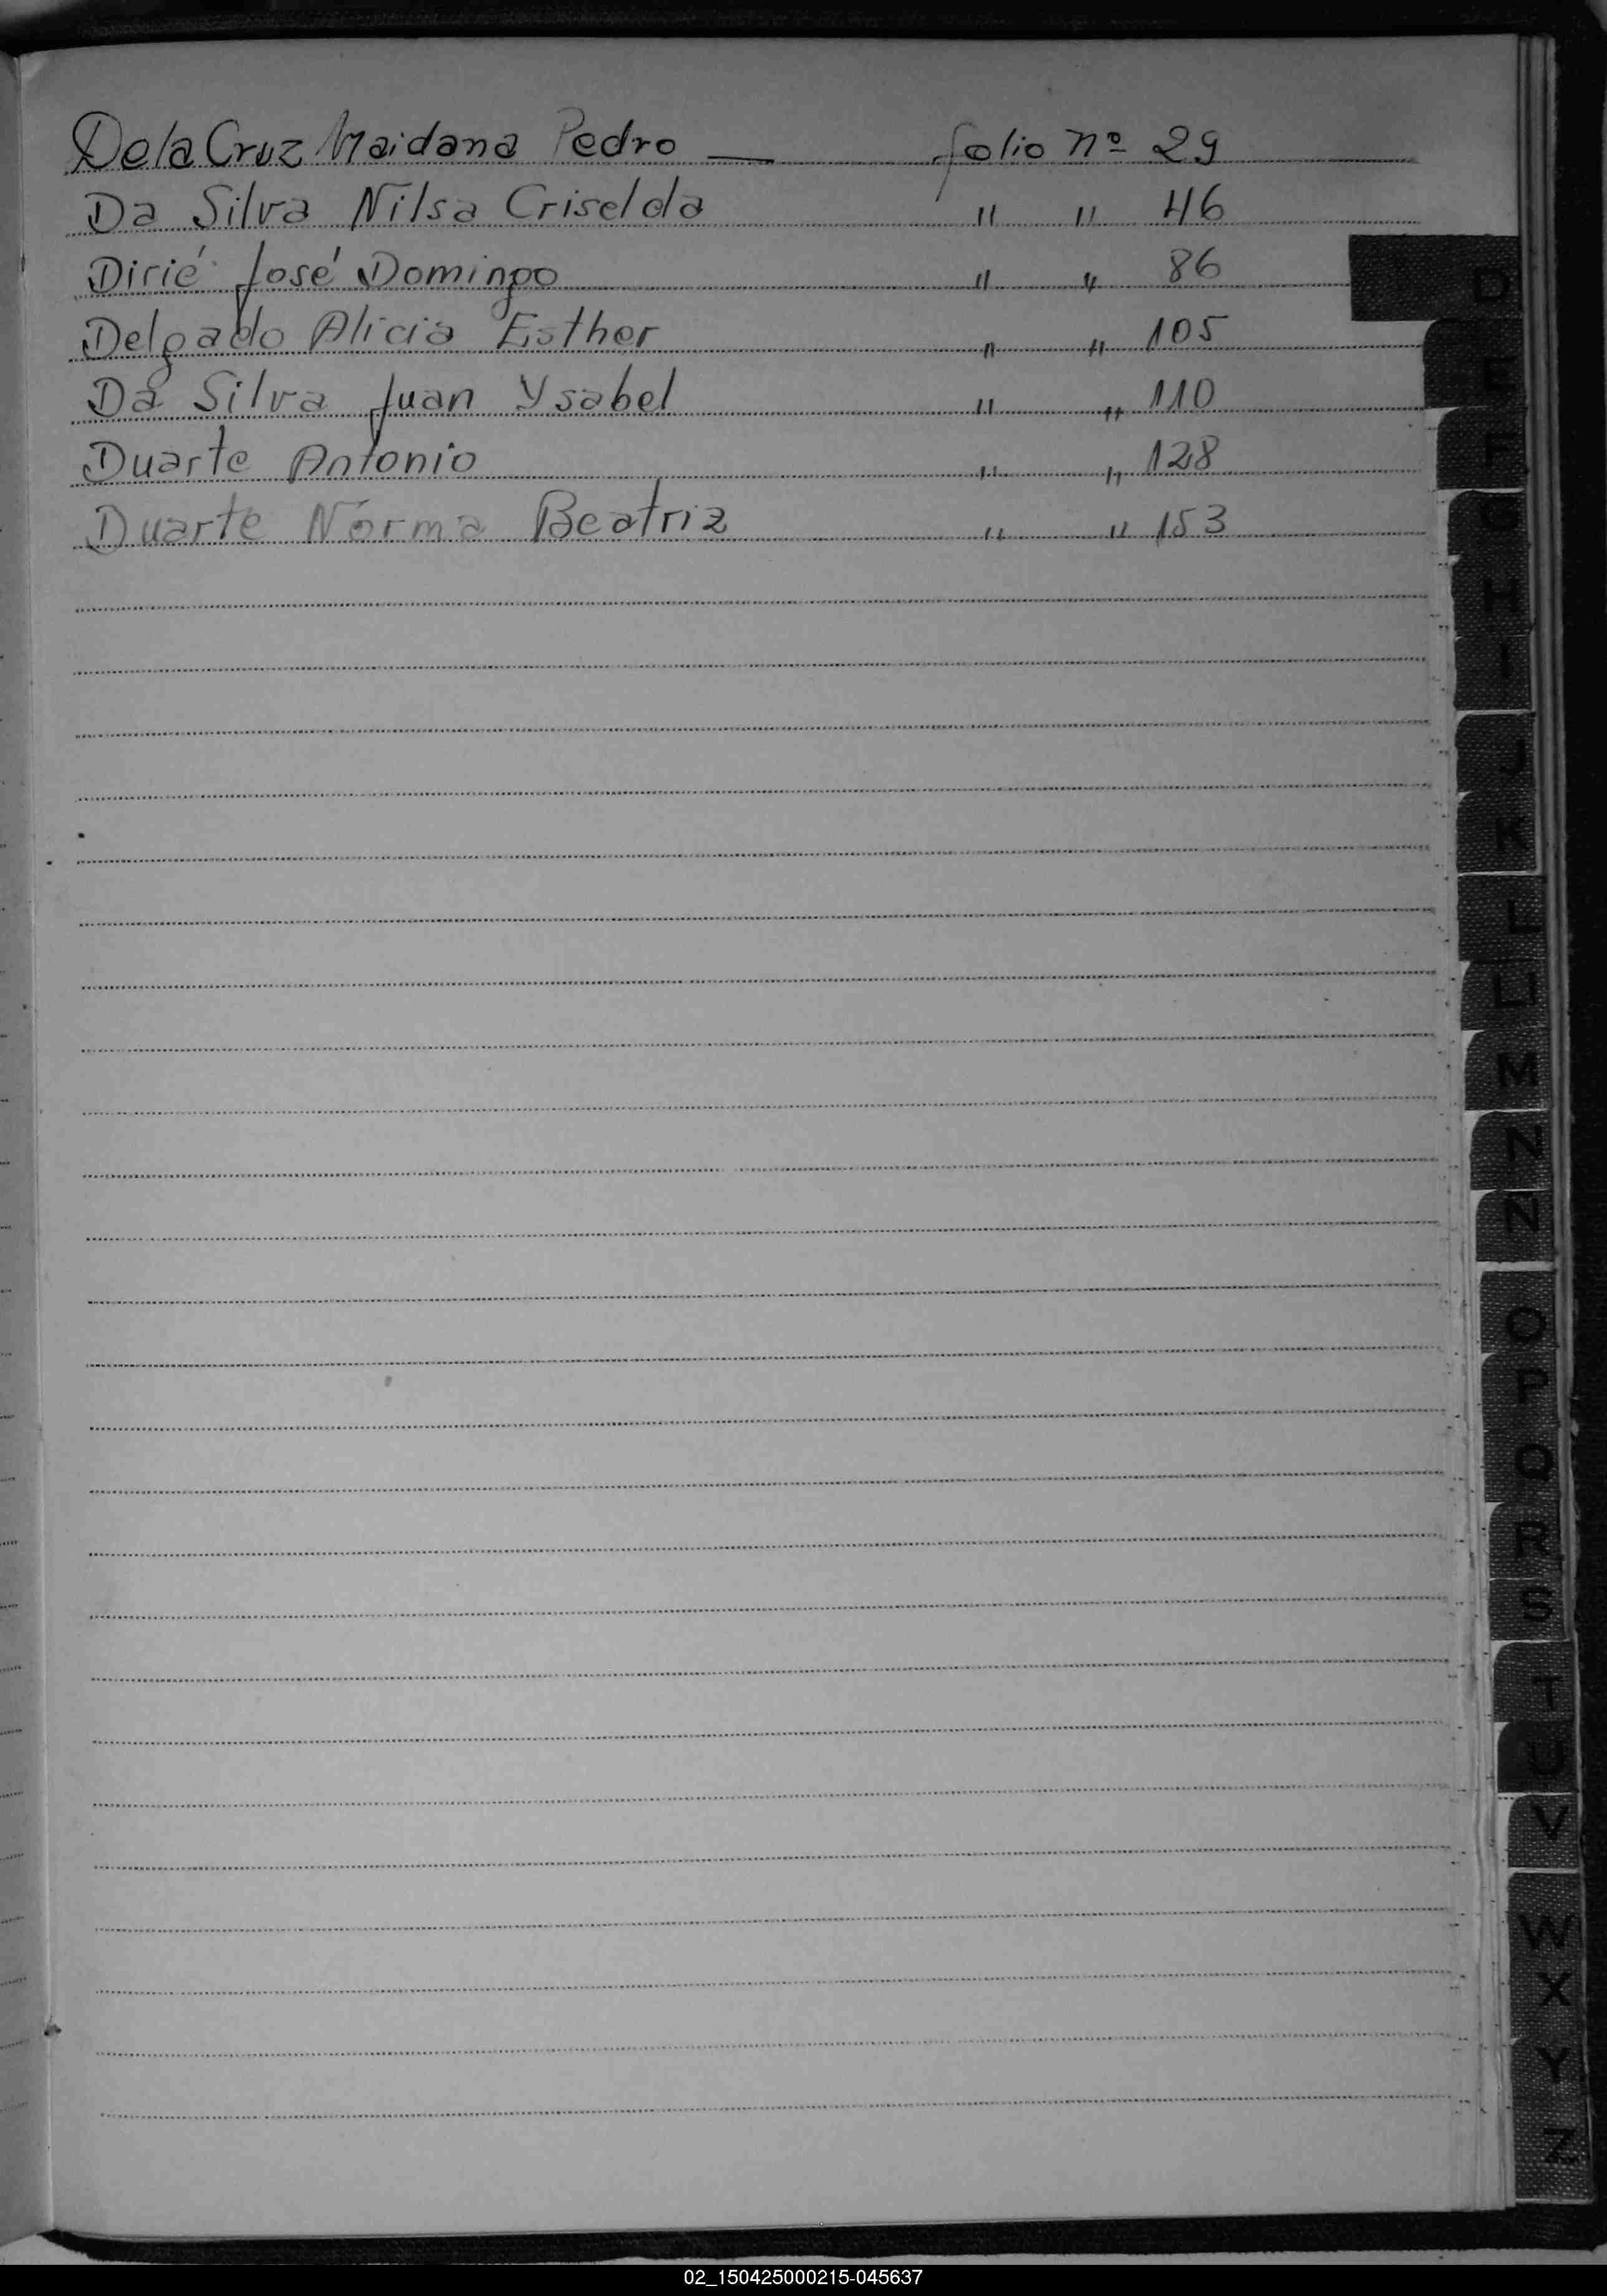 De la Cruz Maidana Pedro — folio nº 29
Da Silva Nilsa Criselda " " 46
Dirié José Domingo " " 86
Delgado Alicia Esther " " 105
Da Silva Juan Ysabel " " 110
Duarte Antonio " " 128
Duarte Norma Beatriz " " 153
D
E
F
G
H
I
J
K
L
LL
M
N
Ñ
O
P
Q
R
S
T
U
V
W
X
Y
Z
02_150425000215-045637